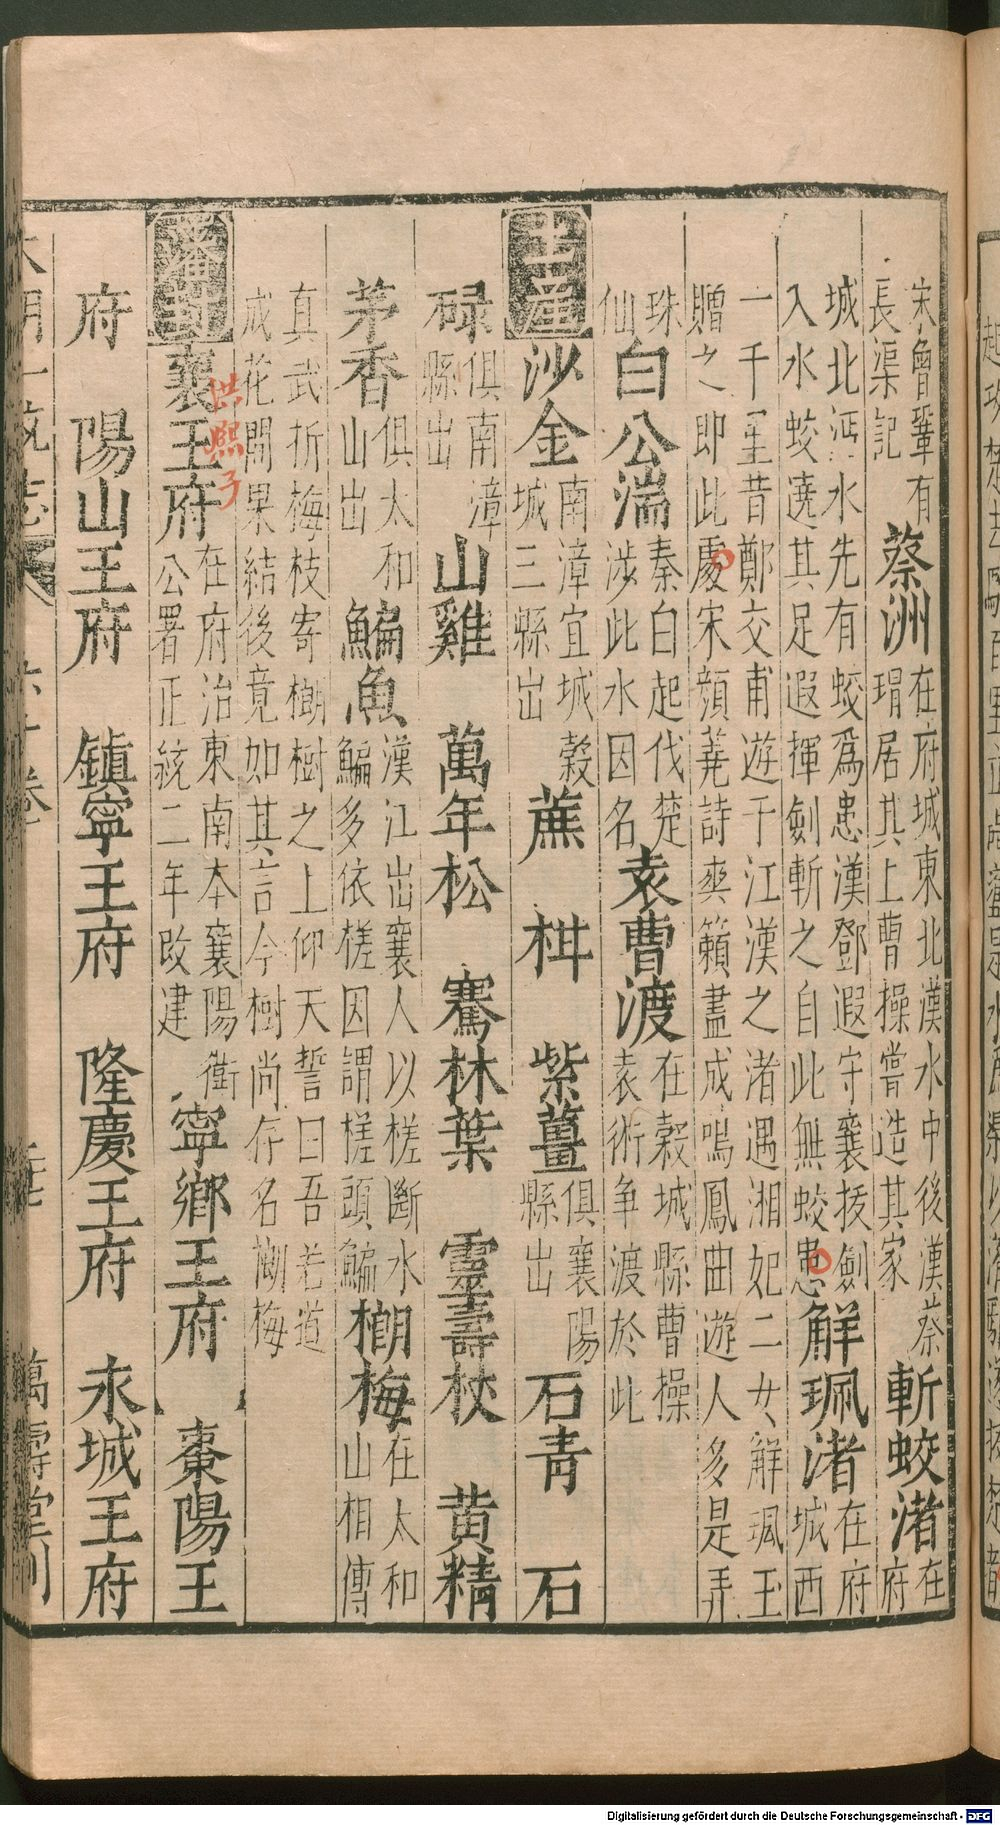 宋曾鞏有
長渠記
蔡洲
在府城東北漢水中後漢蔡
瑁居其上曹操嘗造其家
斬蛟渚
在府
城北沔水先有蛟爲患漢鄧遐守襄拔劍
入水蛟遶其足遐揮劍斬之自此無蛟患
解珮渚
在府
城西
一千里昔鄭交甫遊于江漢之渚遇湘妃二女解珮玉
贈之即此處宋頠蕘詩爽籟盡成鳴鳳曲遊人多是弄
珠
仙
白公湍
秦白起伐楚
涉此水因名
袁曹渡
在穀城縣曹操
袁術争渡於此
土産
沙金
南漳宜城穀
城三縣出
蔗
柑
紫薑
俱襄陽
縣出
石青
石
碌
俱南漳
縣出
山雞
萬年松
騫林葉
靈壽杖
黄精
茅香
俱太和
山出
鯿魚
漢江出襄人以槎斷水
鯿多依槎因謂槎頭鯿
榔梅
在太和
山相傳
真武折梅枝寄榔樹之上仰天誓曰吾若道
成花開果結後竟如其言今樹尚存名榔梅
藩封
襄王府
洪熙子
在府治東南本襄陽衛
公署正統二年改建
寧鄉王府
棗陽王
府
陽山王府
鎮寧王府
隆慶王府
永城王府
大明一統志
六十卷
萬壽堂刊
Digitalisierung gefördert durch die Deutsche Forschungsgemeinschaft - DFG